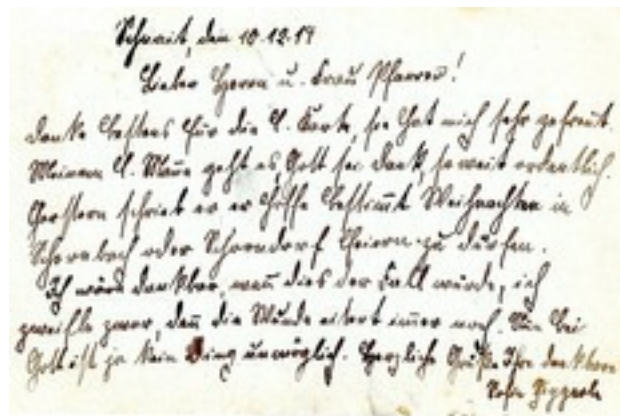 Schnait, den 10.12.14
Lieber Herrn u. Frau Pfarrer!
Danke bestens für die l. Karte, sie hat mich sehr gefreut.
Meinem l. Mann geht es, Gott sei Dank, so weit ordentlich.
Gestern schrieb er er hoffe bestimmt Weihnachten in
oder Schorndorf feiern zu dürfen.
Ich wäre dankbar, wenn dies der Fall würde, ich
zweifle zwar, denn die Wunde eitert immer noch. Nun bei
Gott ist ja kein Ding unmöglich. Herzliche Grüße Ihre dankbare